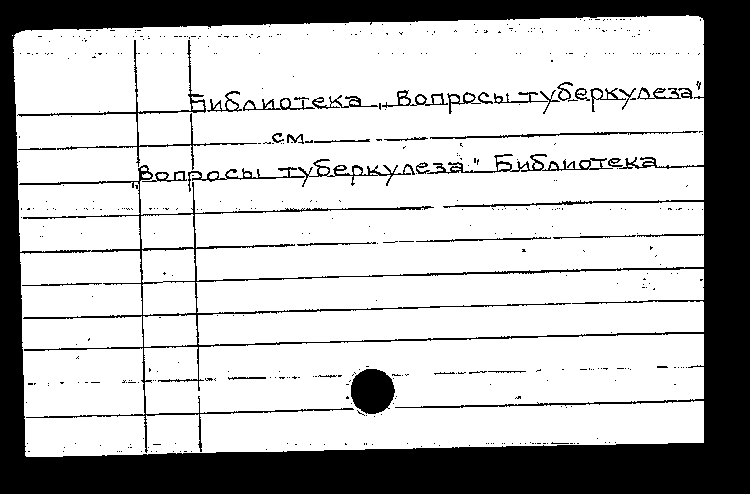 Библиотека „Вопросы туберкулеза"
см.
„Вопросы туберкулеза." Библиотека.